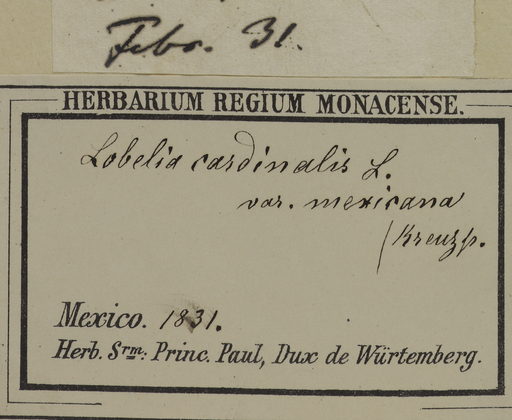 Febr. 31.
HERBARIUM REGIUM MONACENSE.
Lobelia cardinalis L.
var. mexicana
(Kreuzp.
Mexico. 1831.
Herb. Srm: Princ. Paul, Dux de Würtemberg.